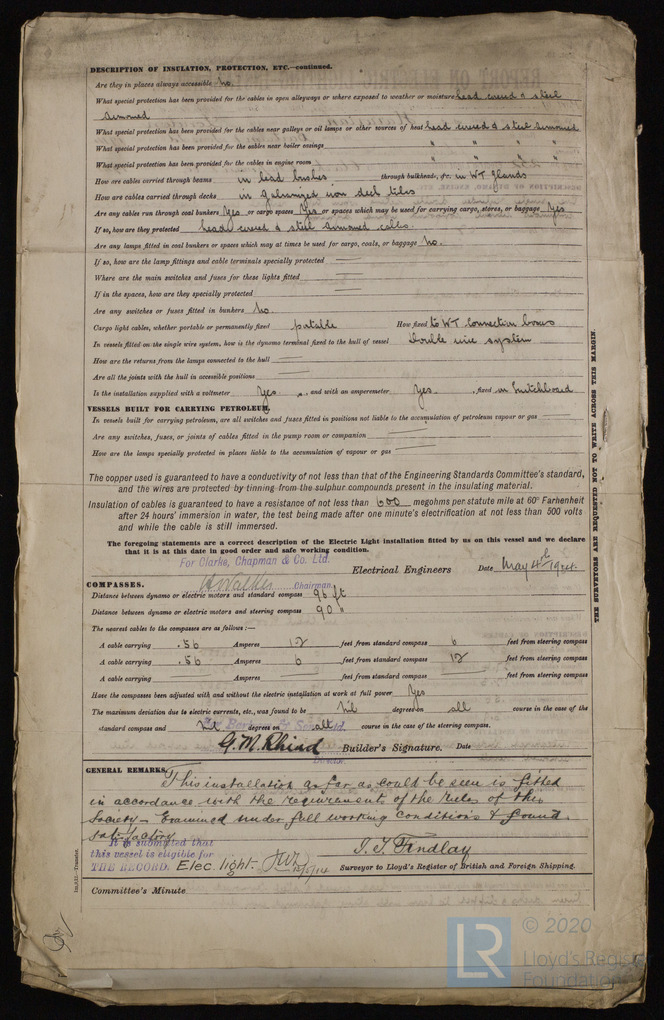 DESCRIPTION OF INSULATION, PROTECTION, ETC.—continued.
Are they in places always accessible No.
What special protection has been provided for the cables in open alleyways or where exposed to weather or moisture lead covered & steel
armoured
What special protection has been provided for the cables near galleys or oil lamps or other sources of heat lead covered & steel armoured
What special protection has been provided for the cables near boiler casings " " " "
What special protection has been provided for the cables in engine room " " " "
How are cables carried through beams in lead bushes through bulkheads, &c. in WT glands
How are cables carried through decks in galvanized iron deck tubes
Are any cables run through coal bunkers Yes or cargo spaces Yes or spaces which may be used for carrying cargo, stores, or baggage Yes
If so, how are they protected lead covered & steel armoured cables
Are any lamps fitted in coal bunkers or spaces which may at times be used for cargo, coals, or baggage No.
If so, how are the lamp fittings and cable terminals specially protected
Where are the main switches and fuses for these lights fitted
If in the spaces, how are they specially protected
Are any switches or fuses fitted in bunkers No.
Cargo light cables, whether portable or permanently fixed portable How fixed to WT connection boxes
In vessels fitted on the single wire system, how is the dynamo terminal fixed to the hull of vessel Double wire system
How are the returns from the lamps connected to the hull
Are all the joints with the hull in accessible positions
Is the installation supplied with a voltmeter Yes , and with an amperemeter Yes , fixed on Switchboard
VESSELS BUILT FOR CARRYING PETROLEUM.
In vessels built for carrying petroleum, are all switches and fuses fitted in positions not liable to the accumulation of petroleum vapour or gas
Are any switches, fuses, or joints of cables fitted in the pump room or companion
How are the lamps specially protected in places liable to the accumulation of vapour or gas
The copper used is guaranteed to have a conductivity of not less than that of the Engineering Standards Committee's standard,
and the wires are protected by tinning from the sulphur compounds present in the insulating material.
Insulation of cables is guaranteed to have a resistance of not less than 600 megohms per statute mile at 60° Farhenheit
after 24 hours' immersion in water, the test being made after one minute's electrification at not less than 500 volts
and while the cable is still immersed.
The foregoing statements are a correct description of the Electric Light installation fitted by us on this vessel and we declare
that it is at this date in good order and safe working condition.
For Clarke, Chapman & Co. Ltd.
Walker Chairman Electrical Engineers Date May 4th 1914.
COMPASSES.
Distance between dynamo or electric motors and standard compass 96 ft
Distance between dynamo or electric motors and steering compass 90 "
The nearest cables to the compasses are as follows:—
A cable carrying .56 Amperes 12 feet from standard compass 6 feet from steering compass
A cable carrying .56 Amperes 6 feet from standard compass 12 feet from steering compass
A cable carrying Amperes feet from standard compass feet from steering compass
Have the compasses been adjusted with and without the electric installation at work at full power Yes
The maximum deviation due to electric currents, etc., was found to be Nil degrees on all course in the case of the
standard compass and Nil degrees on all course in the case of the steering compass.
G.M. Rhind Builder's Signature. Date
Director.
GENERAL REMARKS.
This installation as far as could be seen is fitted
in accordance with the requirements of the Rules of this
Society — Examined under full working conditions & found
satisfactory
It is submitted that
this vessel is eligible for
THE RECORD. Elec. light. 12/5/14
J. T. Findlay
Surveyor to Lloyd's Register of British and Foreign Shipping.
Committee's Minute
THE SURVEYORS ARE REQUESTED NOT TO WRITE ACROSS THIS MARGIN.
© 2020
LR
Lloyd's Register
Foundation